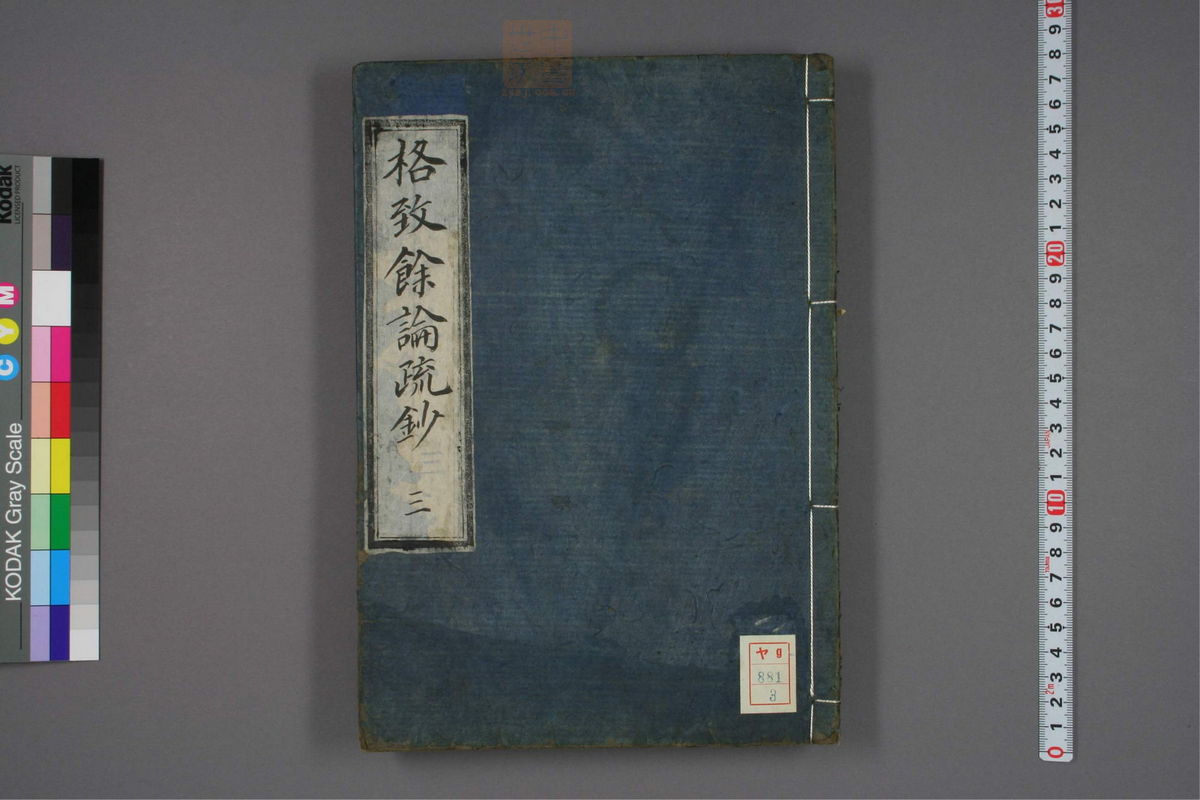 格致餘論疏鈔
三
ヤ9
881
3
Kodak
LICENSED PRODUCT
KODAK Gray Scale
C Y M
0 1 2 3 4 5 6 7 8 9 10 1 2 3 4 5 6 7 8 9 20 1 2 3 4 5 6 7 8 9 30
2m